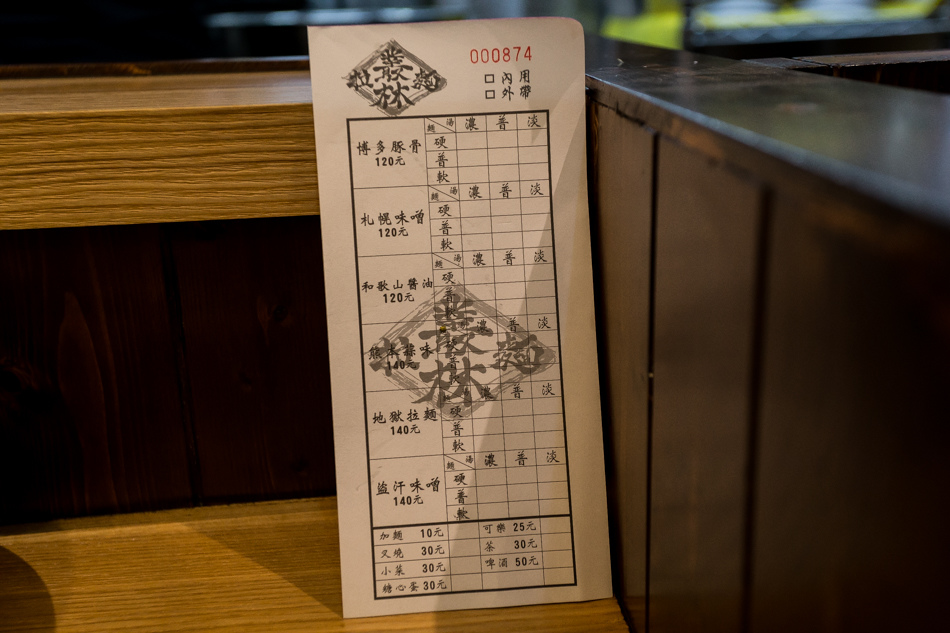 000874
叢林
拉麵
□ 內用
□ 外帶
麵 湯 濃 普 淡
博多豚骨
120元
硬
普
軟
麵 湯 濃 普 淡
札幌味噌
120元
硬
普
軟
麵 湯 濃 普 淡
和歌山醬油
120元
硬
普
軟
濃 普 淡
熊本蒜味
140元
硬
普
軟
湯 濃 普 淡
地獄拉麵
140元
硬
普
軟
麵 湯 濃 普 淡
盜汗味噌
140元
硬
普
軟
叢林
拉麵
加麵 10元 可樂 25元
叉燒 30元 茶 30元
小菜 30元 啤酒 50元
糖心蛋 30元